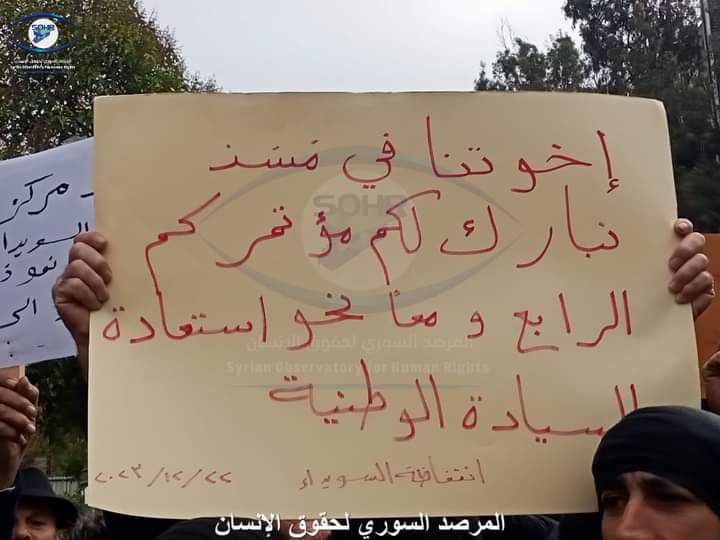 SOHR
المرصد السوري لحقوق الإنسان
Syrian Observatory for Human Rights
إخوتنا في مَسَد
نبارك لكم مؤتمركم
الرابع ومعاً نحو استعادة
السيادة الوطنية
انتفاضة السويداء
٢٠٢٣/١٢/٢٢
SOHR
المرصد السوري لحقوق الإنسان
Syrian Observatory for Human Rights
مركز
السويدا
المرصد السوري لحقوق الإنسان